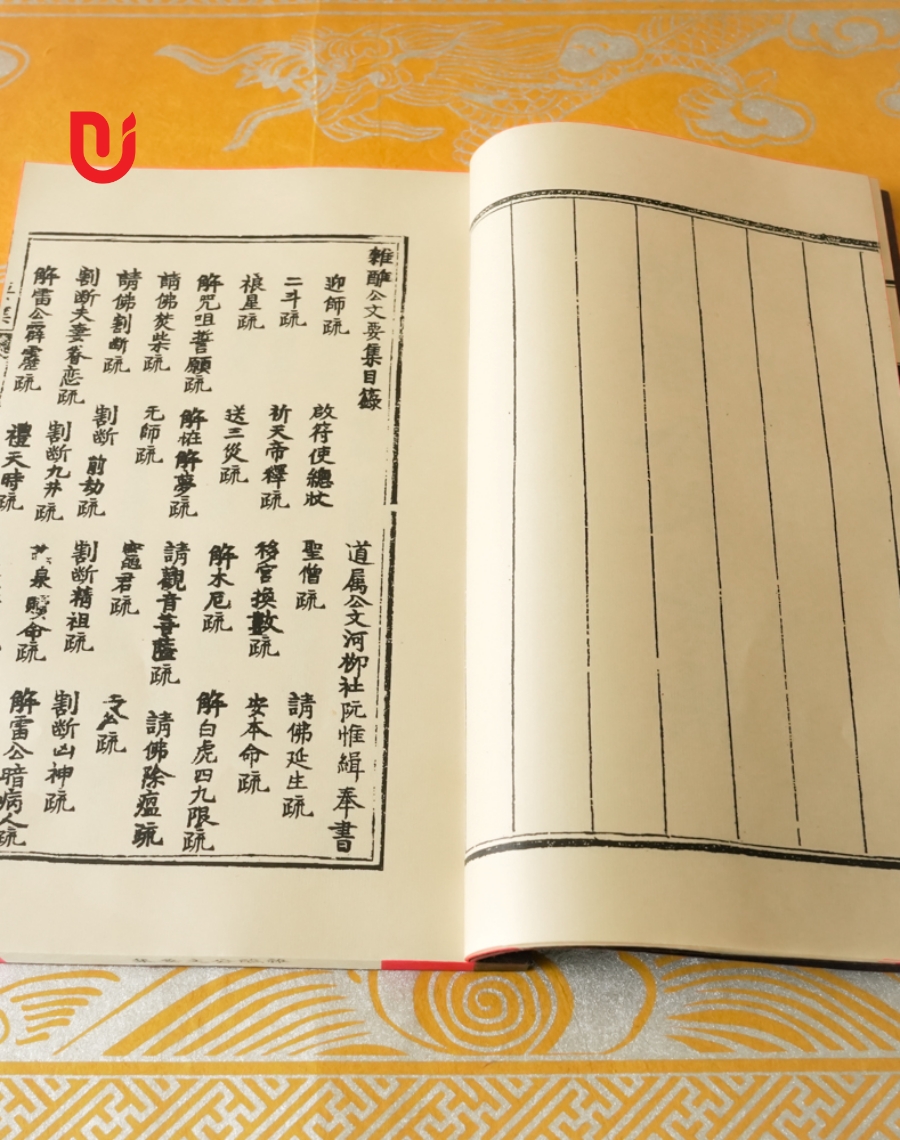 雜醮公文要集目籙 道屬公文河柳社阮惟緝奉書
迎師疏 啟符使總狀 聖僧疏 請佛延生疏
二斗疏 祈天帝釋疏 移宮換數疏 安本命疏
禳星疏 送三災疏 解水厄疏 解白虎四九限疏
解咒咀誓願疏 解恠解夢疏 請觀音菩薩疏 請佛除瘟疏
請佛焚柴疏 元師疏 竈君疏 公疏
請佛割斷疏 割斷前劫疏 割斷精祖疏 割斷凶神疏
割斷夫妻眷恋疏 割斷九井疏 泉贖命疏 解雷公暗病人疏
解雷公霹靂疏 禮天時疏